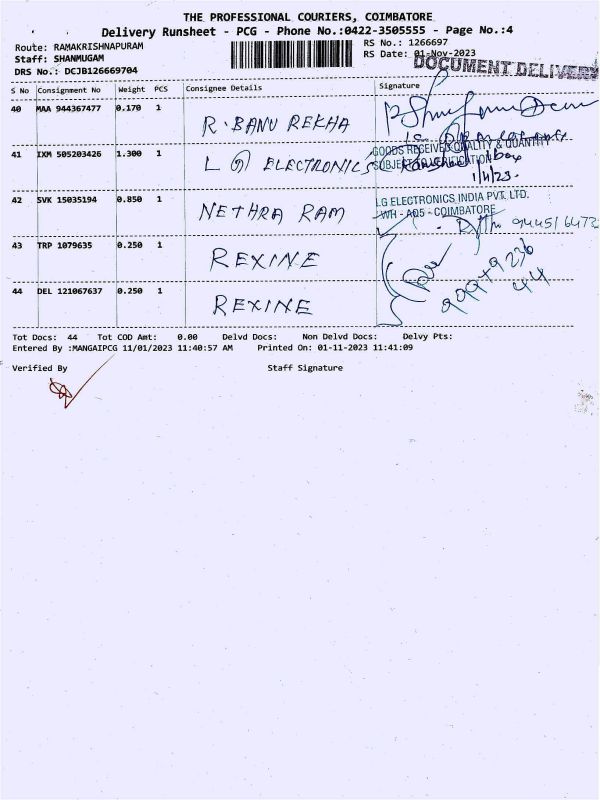 THE PROFESSIONAL COURIERS, COIMBATORE
Delivery Runsheet - PCG - Phone No.:0422-3505555 - Page No.:4
Route: RAMAKRISHNAPURAM
Staff: SHANMUGAM
DRS No.: DCJB126669704
RS No.: 1266697
RS Date: 01-Nov-2023
DOCUMENT DELIVERY
S No Consignment No Weight PCS Consignee Details Signature
40 MAA 944367477 0.170 1 R. BANU REKHA
41 IXM 505203426 1.300 1 L G ELECTRONICS
GOODS RECEIVED QUALITY & QUANTITY
SUBJECT TO VERIFICATION
1/11/23.
42 SVK 15035194 0.850 1 NETHRA RAM
LG ELECTRONICS INDIA PVT. LTD.
WH - AD5 - COIMBATORE
43 TRP 1079635 0.250 1 REXINE
44 DEL 121067637 0.250 1 REXINE
Tot Docs: 44 Tot COD Amt: 0.00 Delvd Docs: Non Delvd Docs: Delvy Pts:
Entered By :MANGAIPCG 11/01/2023 11:40:57 AM Printed On: 01-11-2023 11:41:09
Verified By Staff Signature